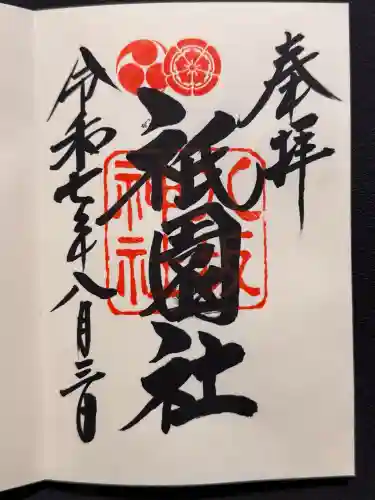 奉拝
祇園社
八坂
神社
令和七年八月三日